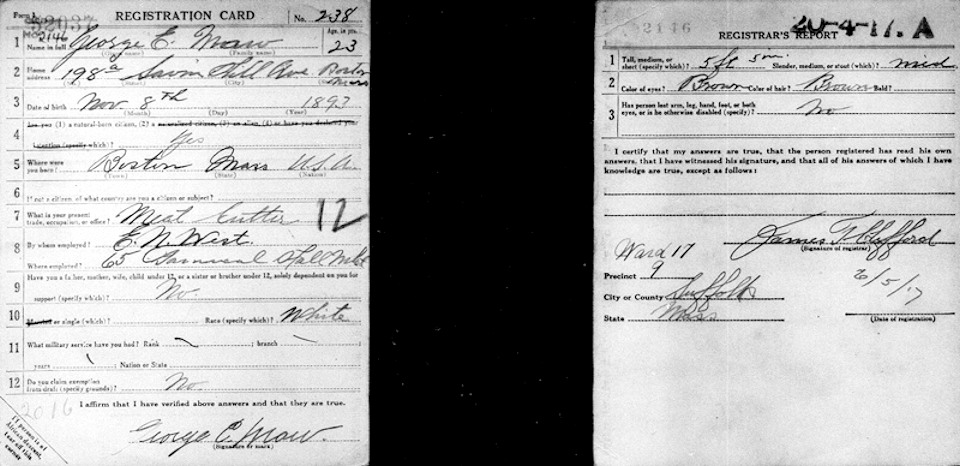 Form 1
REGISTRATION CARD No. 238
2146
1 Name in full George E. Maw Age, in yrs. 23
(Given name) (Family name)
2 Home address 198a Savin Hill Ave Boston Mass
(No.) (Street) (City) (State)
3 Date of birth Nov. 8th 1893
(Month) (Day) (Year)
4 Are you (1) a natural-born citizen, (2) a naturalized citizen, (3) an alien, (4) or have you declared your
intention (specify which)? Yes
5 Where were you born? Boston Mass U.S.A.
(Town) (State) (Nation)
6 If not a citizen, of what country are you a citizen or subject?
7 What is your present trade, occupation, or office? Meat Cutter 12
8 By whom employed? E. N. West.
Where employed? 65 Hall
9 Have you a father, mother, wife, child under 12, or a sister or brother under 12, solely dependent on you for
support (specify which)? No
10 Married or single (which)? Race (specify which)? White
11 What military service have you had? Rank ; branch
years ; Nation or State
12 Do you claim exemption from draft (specify grounds)? No.
I affirm that I have verified above answers and that they are true.
2016
George E. Maw
(Signature or mark)
If person is of African descent, tear off this corner
2146 20-4-17. A
REGISTRAR'S REPORT
1 Tall, medium, or short (specify which)? 5 ft 5 in Slender, medium, or stout (which)? med
2 Color of eyes? Brown Color of hair? Brown Bald?
3 Has person lost arm, leg, hand, foot, or both eyes, or is he otherwise disabled (specify)? No
I certify that my answers are true, that the person registered has read his own
answers, that I have witnessed his signature, and that all of his answers of which I have
knowledge are true, except as follows:
James T Clifford
(Signature of registrar)
Ward 17
Precinct 9
City or County Suffolk
State Mass
6/5/17
(Date of registration)